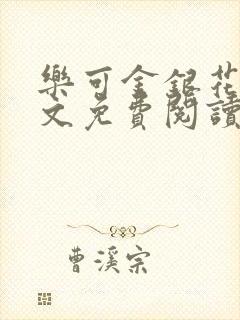 樂可金銀花
文免費閱讀
曹溪宗